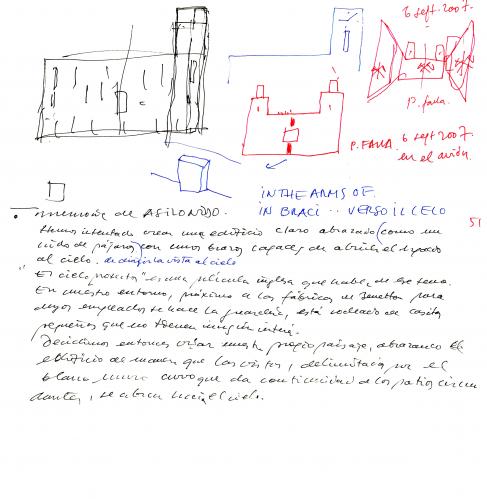 6 sept. 2007.
P. FALLA.
P. FALLA 6 sept 2007.
en el avión.
IN THE ARMS OF.
IN BRACI .. VERSO IL CELO
51
• memoria de ASILO NIDO.
Hemos intentado crear una edificio claro abrazado (como un
nido de pájaros) con unos brazos capaces de abrir el
al cielo. la vista al cielo
"El cielo " es una película inglesa que habla de ese tema.
En nuestro entorno, próximo a las fábricas de Benetton para
cuyos empleados se hace la guardería, está rodeado de casitas
pequeñas que no tienen ningún interés.
Decidimos entonces crear nuestro propio paisaje, abrazando el
edificio de manera que las vistas, delimitadas por el
blanco muro curvo que da continuidad a los patios circun
dantes, se abran hacia el cielo.